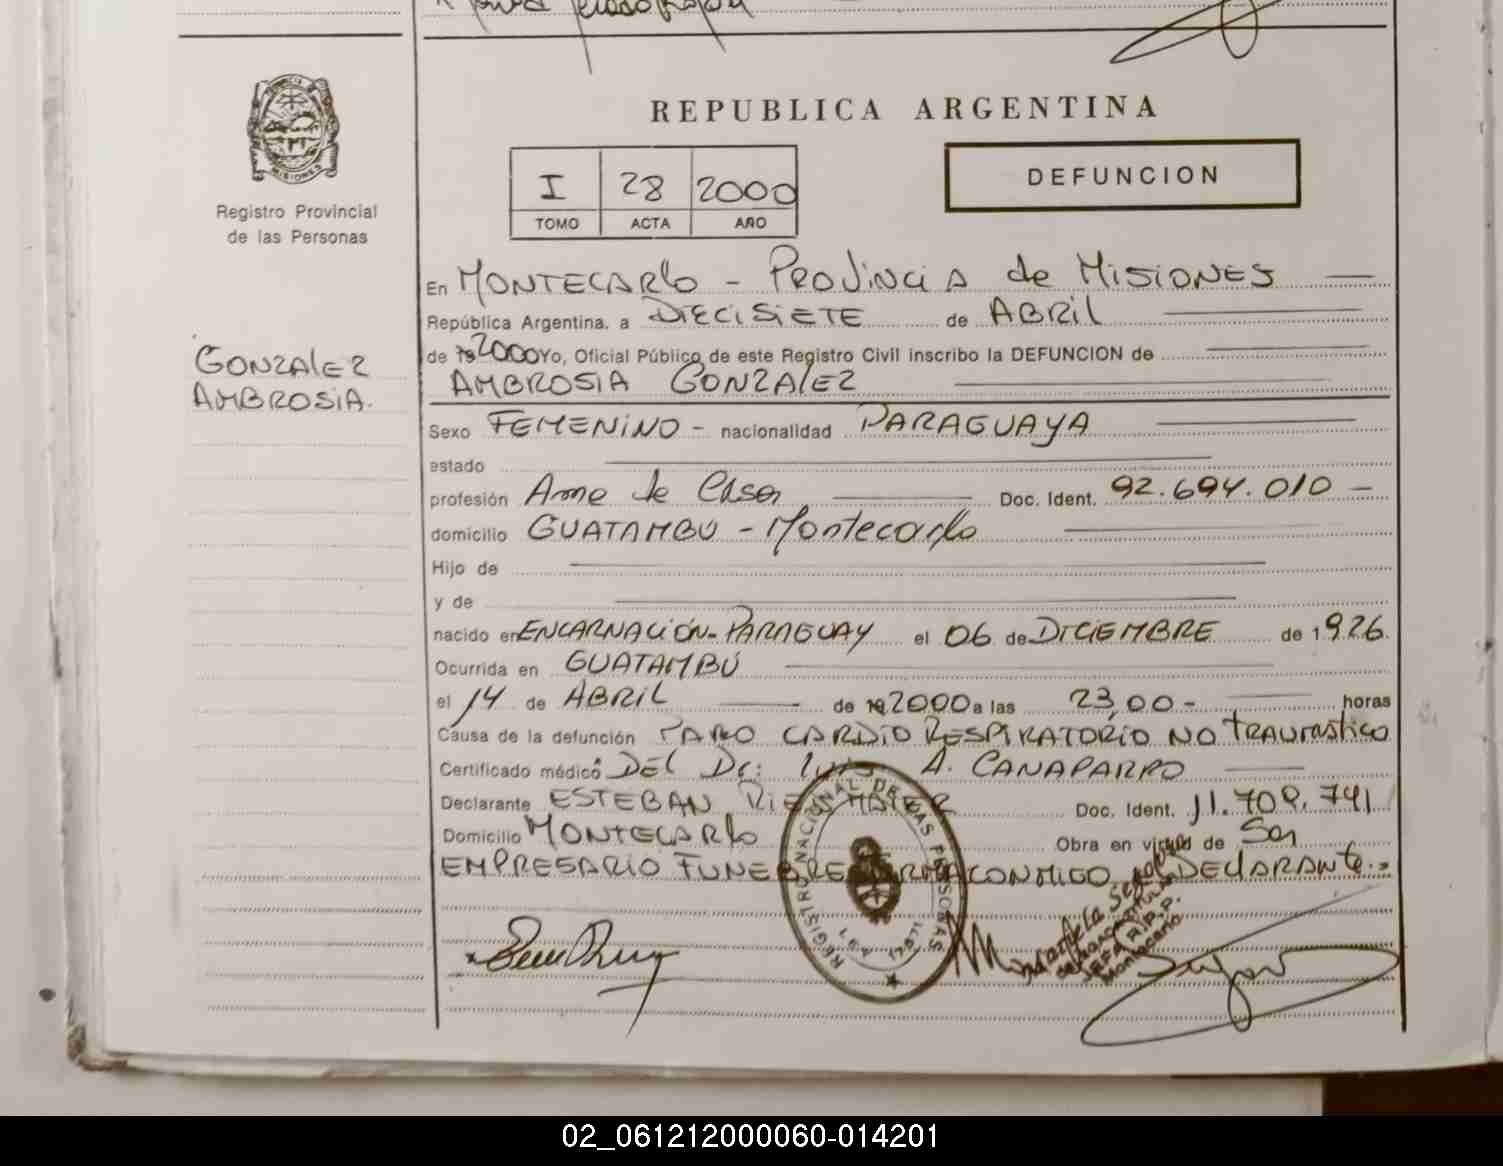 REPUBLICA ARGENTINA
MISIONES
Registro Provincial
de las Personas
I 28 2000
TOMO ACTA AÑO
DEFUNCION
GONZALEZ
AMBROSIA.
En MONTECARlo - PROVinciA de MISIONES
República Argentina, a DIECISIETE de ABRIL
de 192000 Yo, Oficial Público de este Registro Civil inscribo la DEFUNCION de
AMBROSIA GONZALEZ
Sexo FEMENINO - nacionalidad PARAGUAYA
estado
profesión Ama de Casa Doc. Ident. 92.694.010 -
domicilio GUATAMBÚ - Montecarlo
Hijo de
y de
nacido en ENCARNACIÓN - PARAGUAY el 06 de DICIEMBRE de 1926.
Ocurrida en GUATAMBÚ
el 14 de ABRIL de 192000 a las 23,00 - horas
Causa de la defunción PARO CARDIO RESPIRATORIO NO TRAUMATICO
Certificado médico DEL Dr: Luis A. CANAPARRO
Declarante ESTEBAN Doc. Ident. 11.709.741
Domicilio MONTECARlo Obra en virtud de Ser
EMPRESARIO FUNEBRE FIRMA CONMIGO DEClARANTE.=
REGISTRO NACIONAL DE LAS PERSONAS
JEFA R.P.P.
Montecarlo
02_061212000060-014201